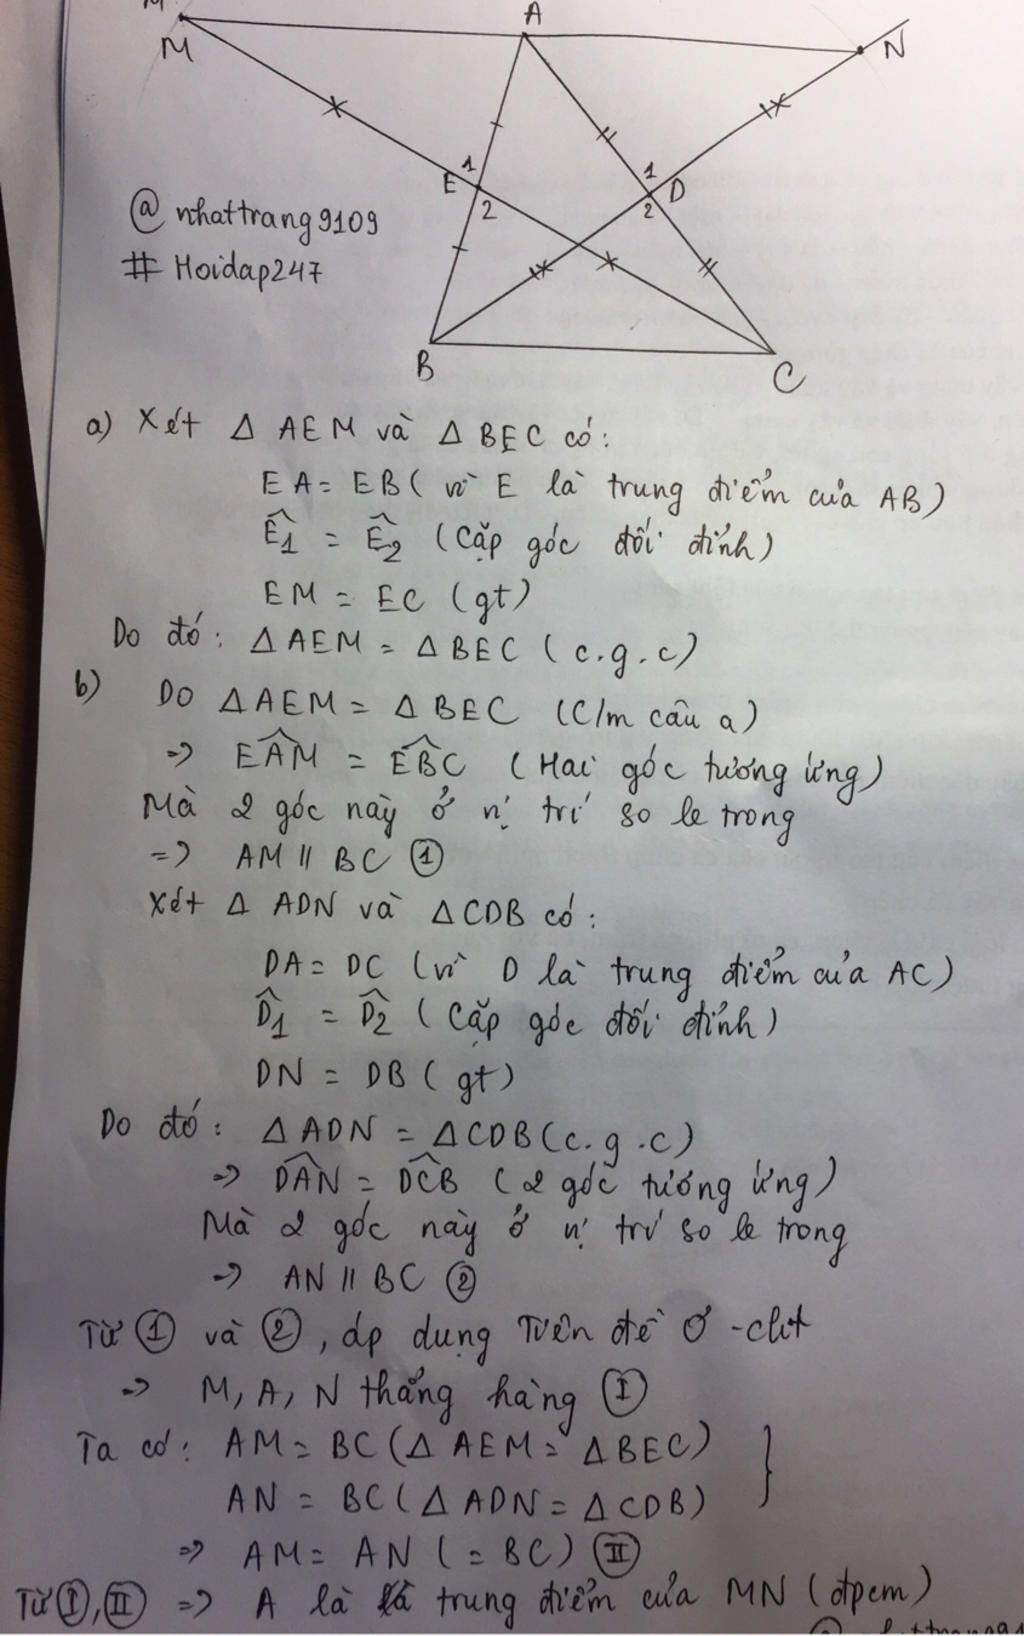 M
A
M
N
1
E
2
1
D
2
@nhattrang9109
# Hoidap247
B
C
a) Xét Δ AEM và Δ BEC có:
EA = EB ( vì E là trung điểm của AB)
Ê1 = Ê2 (Cặp góc đối đỉnh)
EM = EC (gt)
Do đó: Δ AEM = Δ BEC (c.g.c)
b) Do Δ AEM = Δ BEC (C/m câu a)
=> EÂM = EB̂C (Hai góc tương ứng)
Mà 2 góc này ở vị trí so le trong
=> AM // BC ①
Xét Δ ADN và Δ CDB có:
DA = DC (vì D là trung điểm của AC)
D̂1 = D̂2 ( Cặp góc đối đỉnh)
DN = DB (gt)
Do đó: Δ ADN = Δ CDB (c.g.c)
=> DÂN = DĈB (2 góc tương ứng)
Mà 2 góc này ở vị trí so le trong
=> AN // BC ②
Từ ① và ②, áp dụng Tiên đề Ơ-clit
=> M, A, N thẳng hàng Ⓘ
Ta có: AM = BC (Δ AEM = Δ BEC) }
AN = BC (Δ ADN = Δ CDB)
=> AM = AN (= BC) (II)
Từ Ⓘ, (II) => A là trung điểm của MN (đpcm)